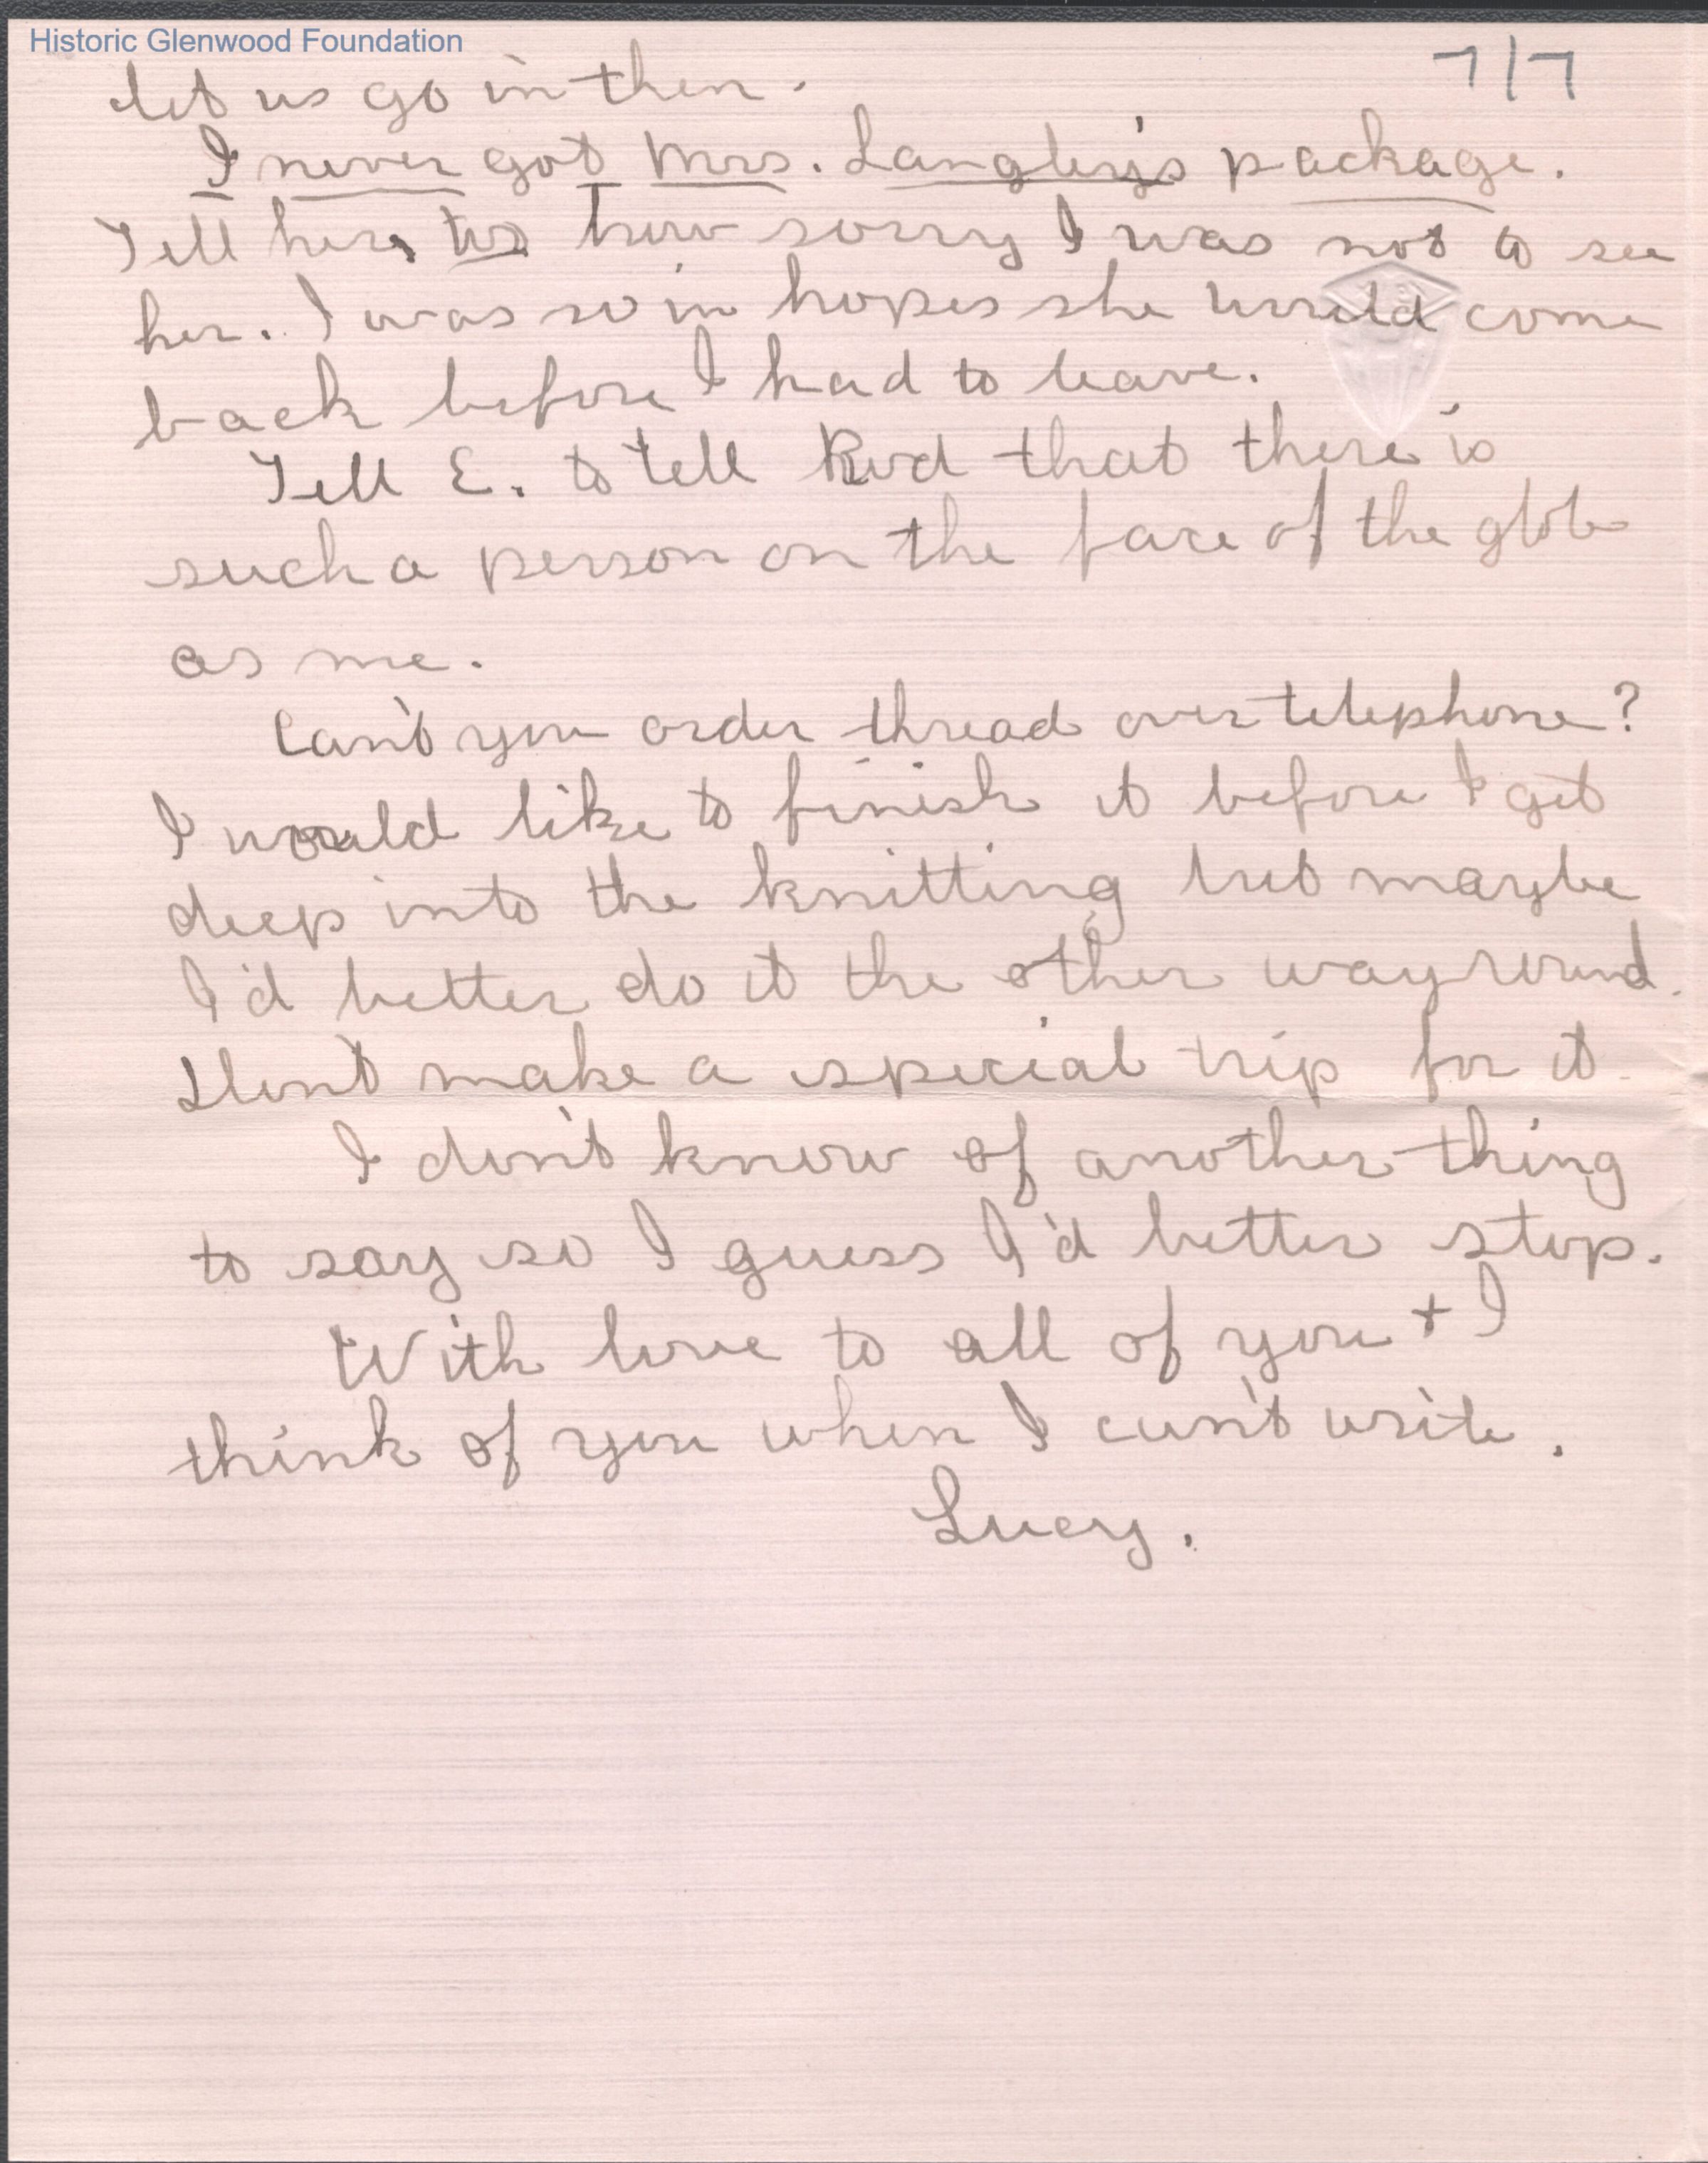 Historic Glenwood Foundation
7/7
let us go in then.
I never got Mrs. Langley's package.
Tell her, too how sorry I was not to see
her. I was so in hopes she would come
back before I had to leave.
Tell E. to tell Rod that there is
such a person on the face of the globe
as me.
Can't you order thread over telephone?
I would like to finish it before I get
deep into the knitting but maybe
I'd better do it the other way round.
Don't make a special trip for it.
I don't know of another thing
to say so I guess I'd better stop.
With love to all of you + I
think of you when I can't write.
Lucy.